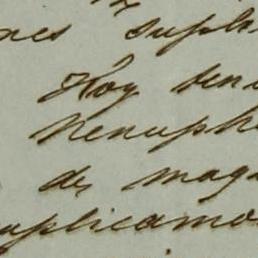 nes supli
Hoy ten
Nenuph
de mag
uplicamo